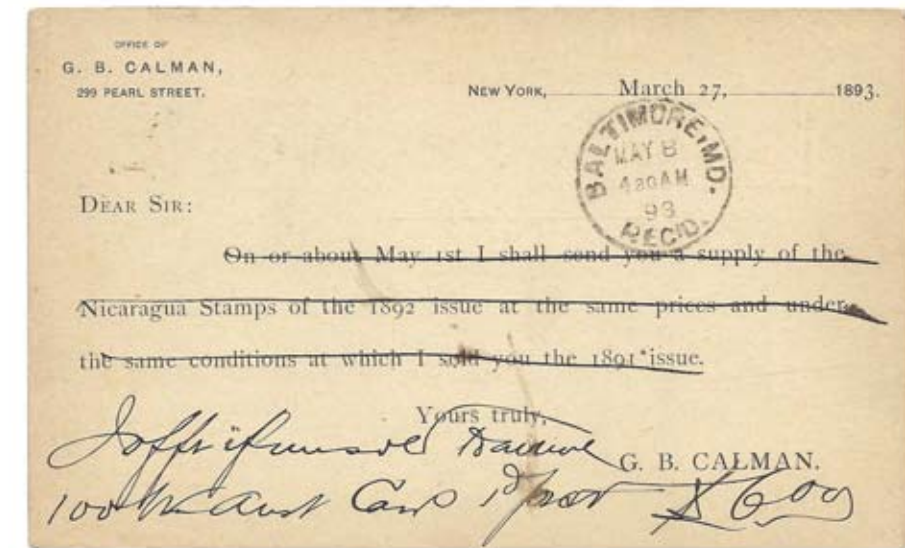 OFFICE OF
G. B. CALMAN,
299 PEARL STREET.
NEW YORK, March 27, 1893.
BALTIMORE, MD.
MAY 8
4 30 AM
93
REC'D.
DEAR SIR:
On or about May 1st I shall send you a supply of the
Nicaragua Stamps of the 1892 issue at the same prices and under
the same conditions at which I sold you the 1891 issue.
Yours truly,
G. B. CALMAN.
I offr if unsold
100 Aust Card 1d